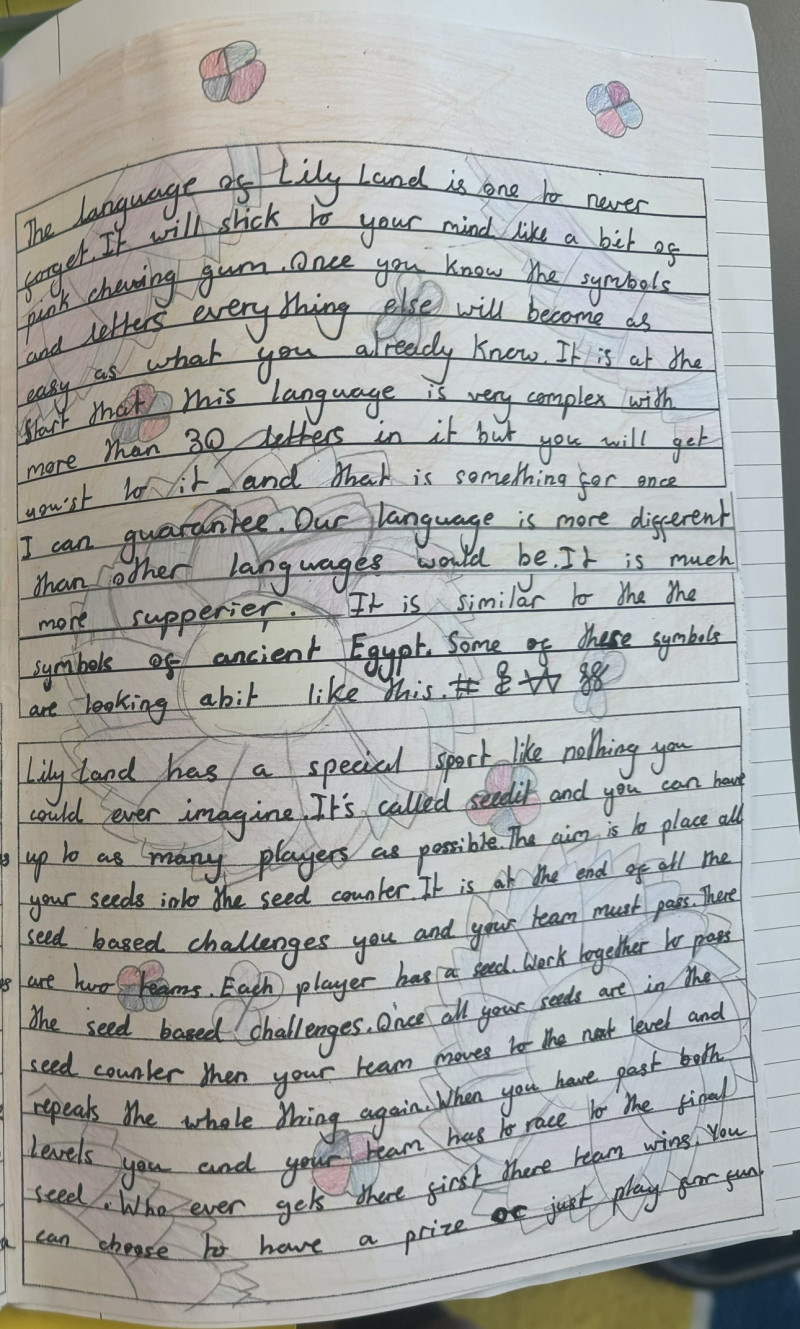 The language of Lily Land is one to never
forget. It will stick to your mind like a bit of
pink chewing gum. Once you know the symbols
and letters every thing else will become as
easy as what you already know. It is at the
start that this language is very complex with
more than 30 letters in it but you will get
to it and that is something for once
I can guarantee. Our language is more different
than other languages would be. It is much
more supperier. It is similar to the the
symbols of ancient Egypt. Some of these symbols
are looking abit like this.
Lily Land has a special sport like nothing you
could ever imagine. It's called seedit and you can have
up to as many players as possible. The aim is to place all
your seeds into the seed counter. It is at the end of all the
seed based challenges you and your team must pass. There
are two teams. Each player has a seed. Work together to pass
the seed based challenges. Once all your seeds are in the
seed counter then your team moves to the next level and
repeats the whole thing again. When you have past both
levels you and your team has to race to the final
seed. Who ever gets there first there team wins. You
can choose to have a prize or just play for fun.